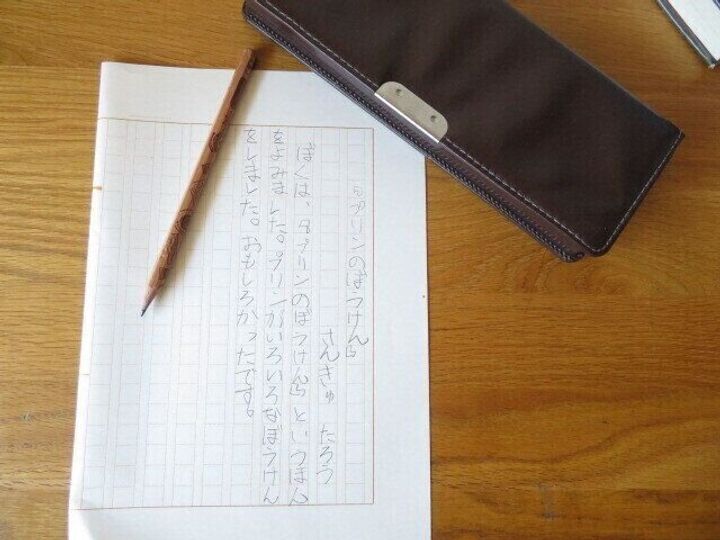 『プリンのぼうけん』
さんきゅ たろう
ぼくは、『プリンのぼうけん』というほん
をよみました。プリンがいろいろなぼうけん
をしました。おもしろかったです。